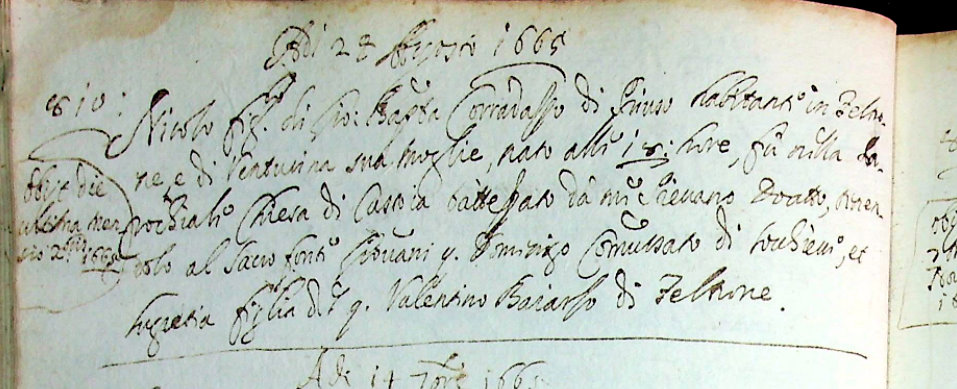 Adi 28 Agosto 1665
810:
Nicolo fig. di Gio: Bapta Corradasso di Priuso habitante in Feltro-
ne, e di Venturina sua moglie, nato alli 18: hore, fù nella Pa-
rochiale Chiesa di Castoia battezzato da me Pievano Donato, tenen-
dolo al Sacro fonte Giovani q. Domenigo Comussato di Sochieve, et
Lugretia figlia del q. Valentino Baiarso di Feltrone.
obijt die
ultima men
1665
Adi 14 7bre 1665